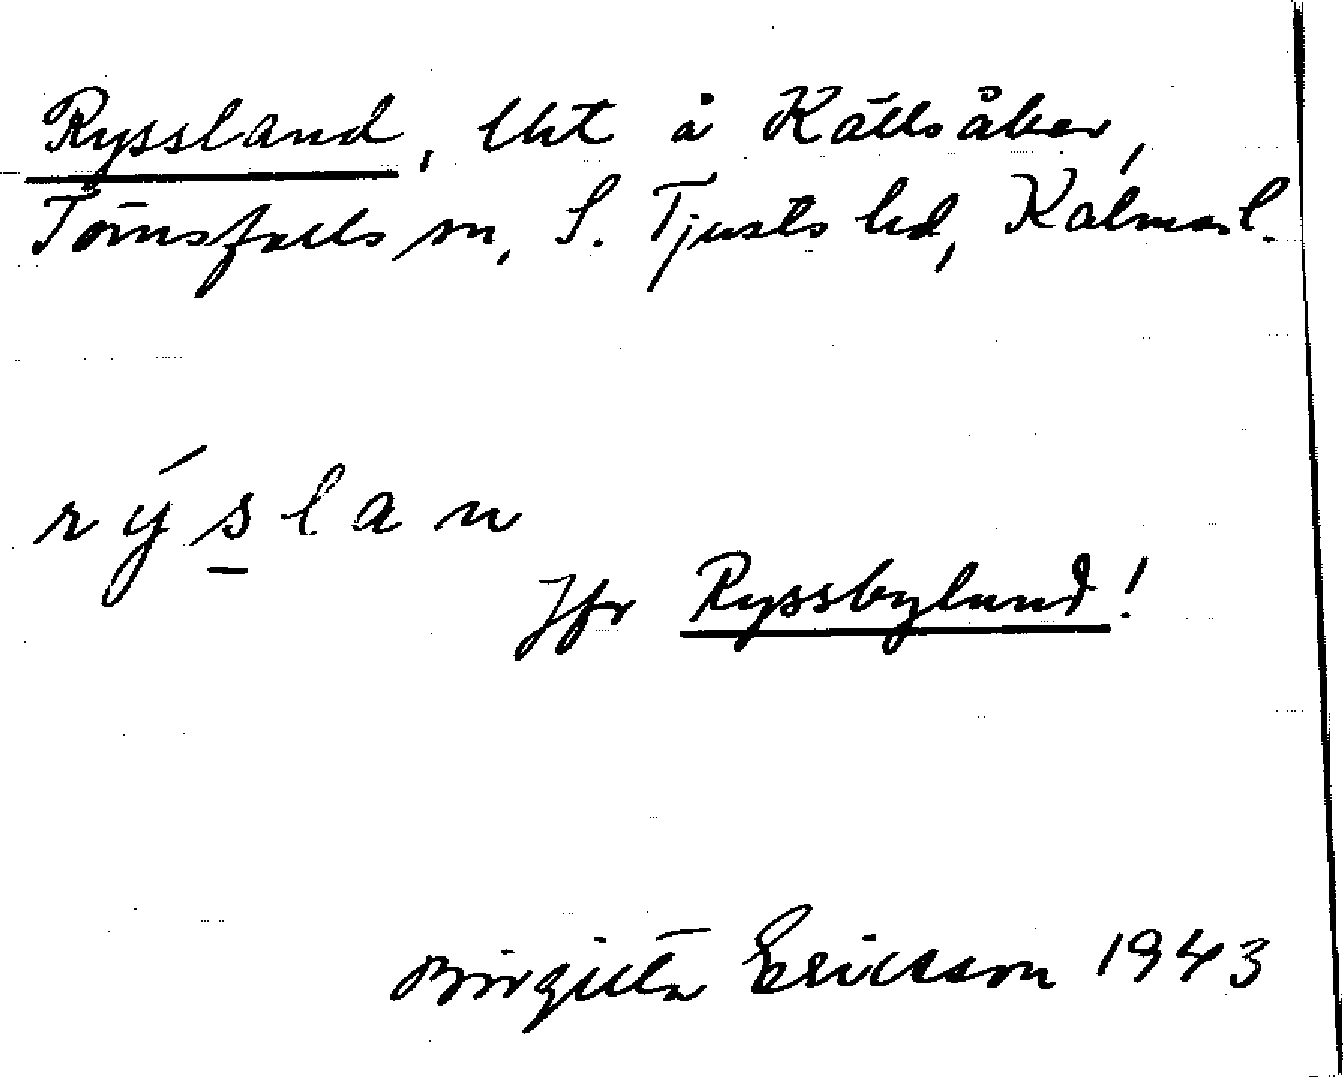 Ryssland, lht å Källsåker,
Törnsfalls sn, S. Tjusts hd, Kalmar l.
rýslan
Jfr Ryssbylund!
Birgitta Ericsson 1943